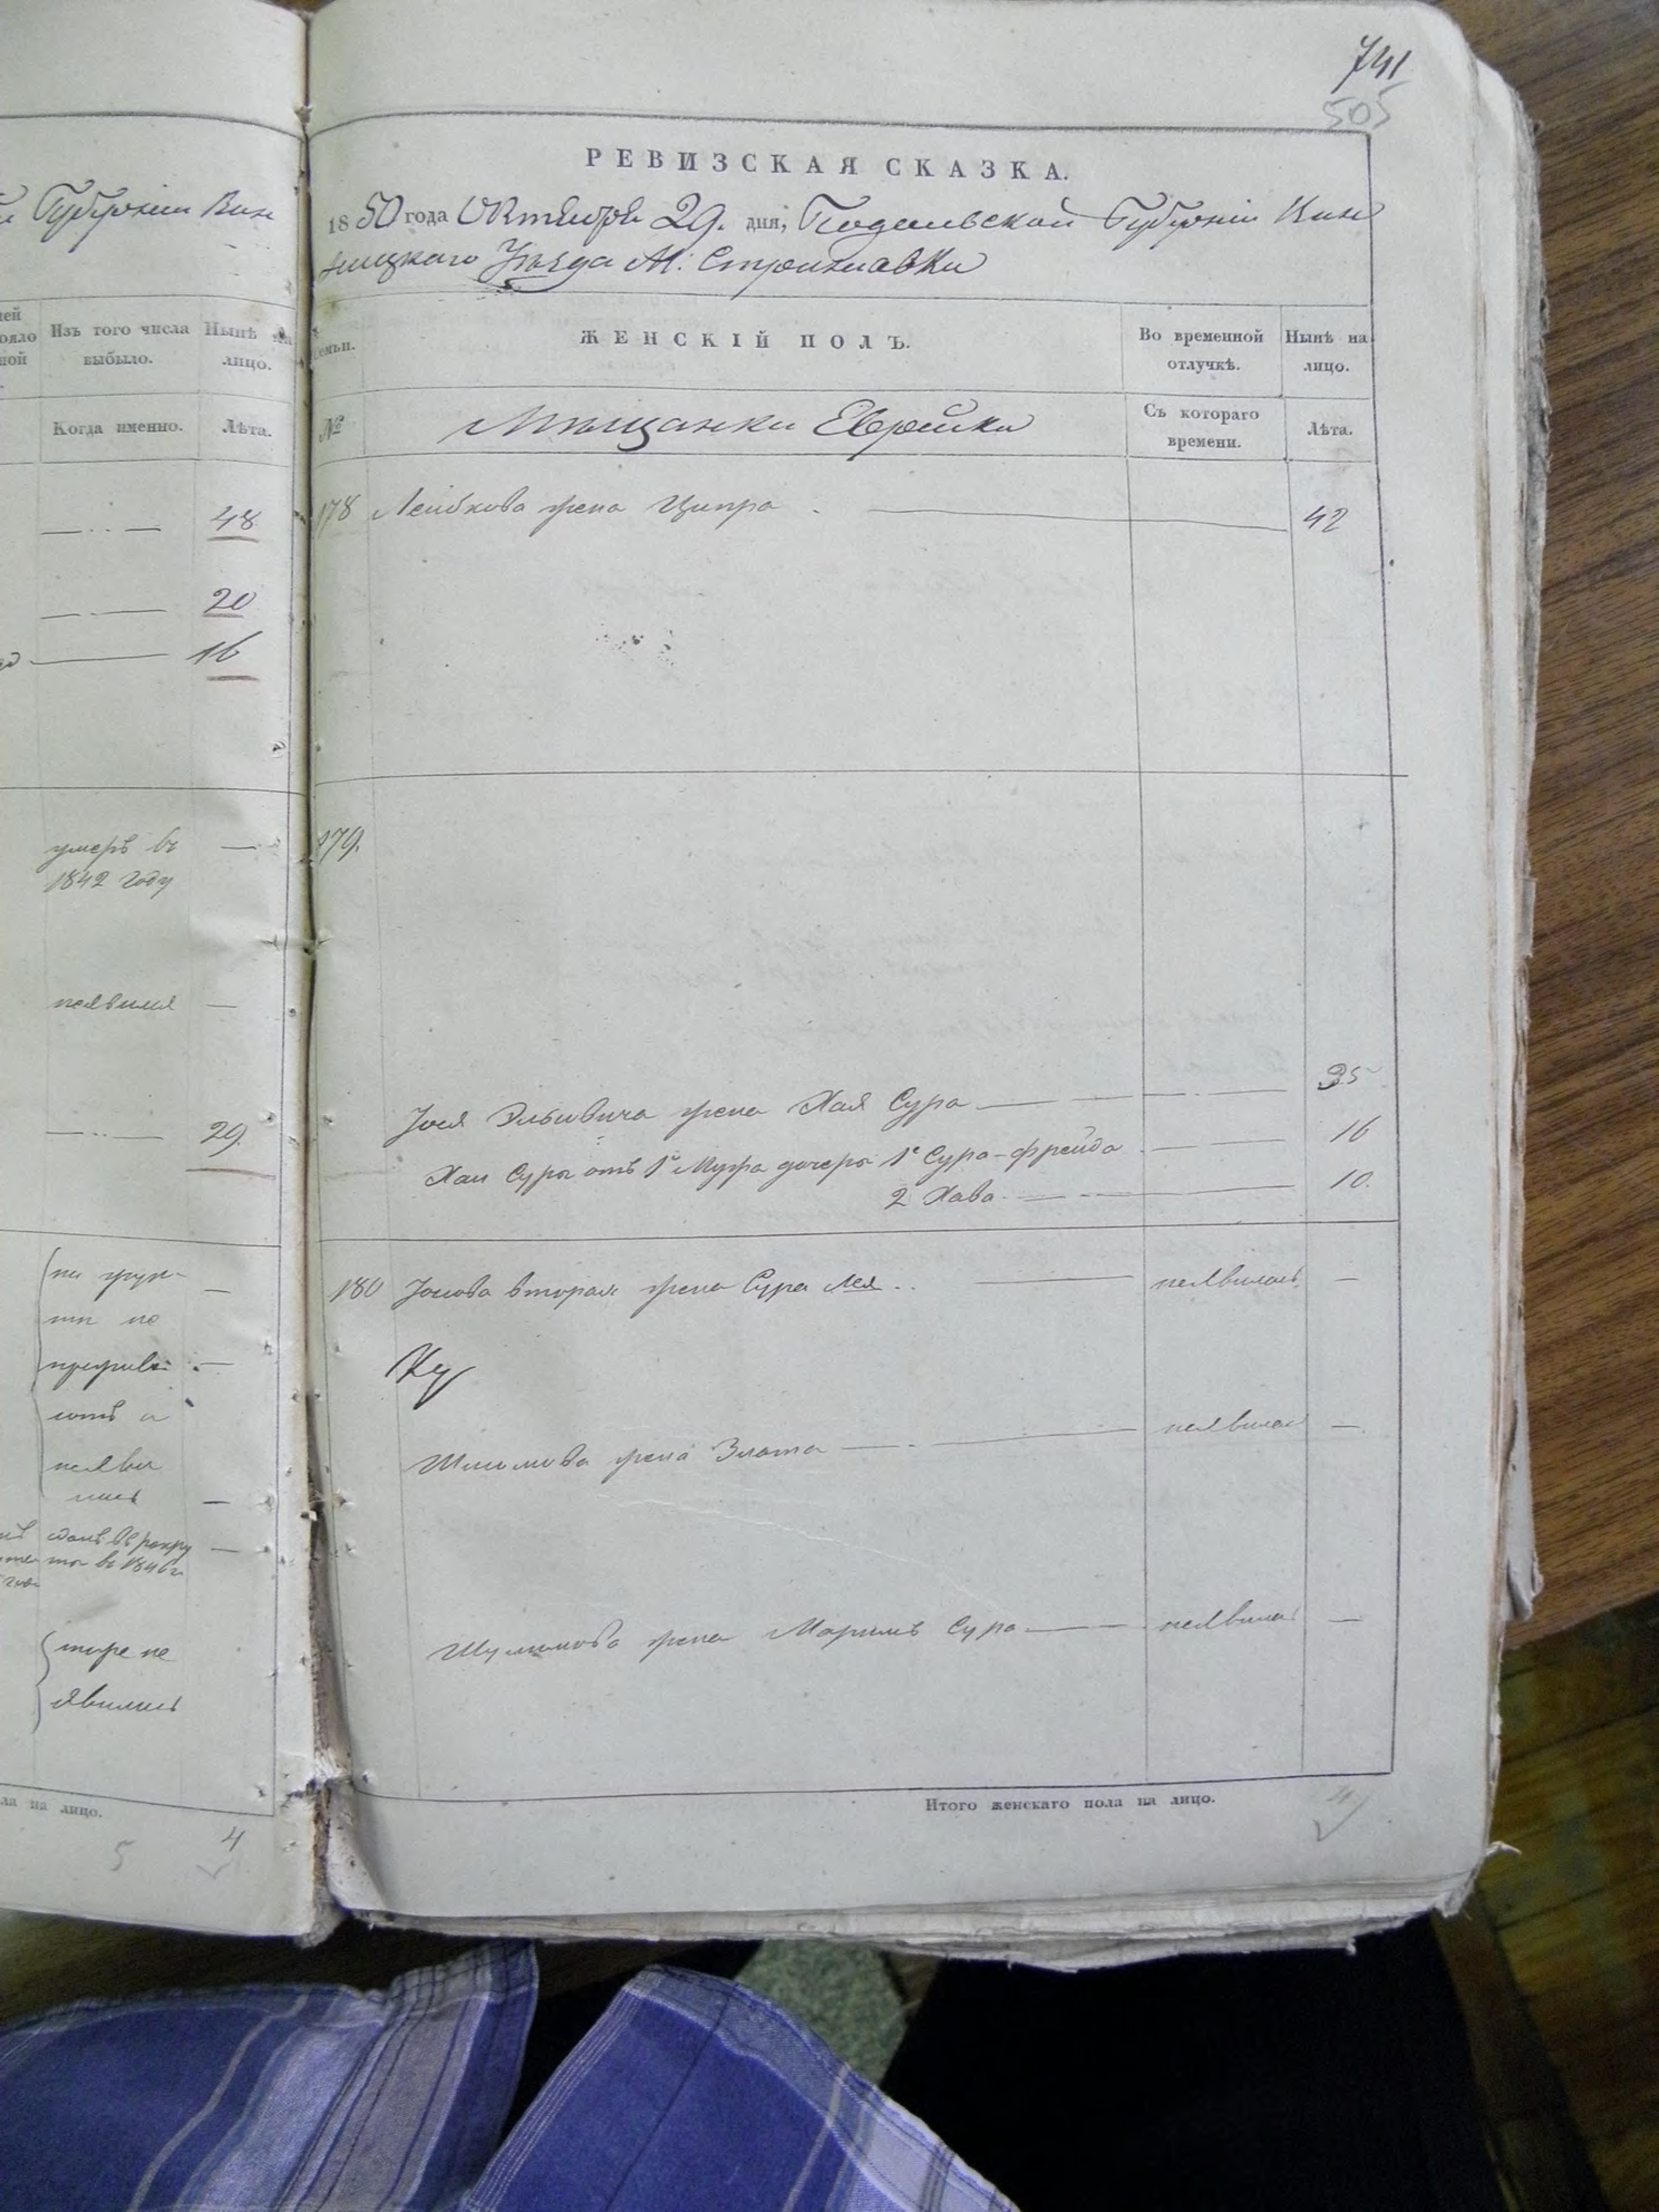 Губерніи Вин
Изъ того числа
Нынѣ на
выбыло.
лицо.
Когда именно.
Лѣта.
48
20
16
умеръ въ
1842 году
неявился
29
ни
не
неяви
лись
въ 1846 г
не
явились
ла на лицо.
5 4
741
505
РЕВИЗСКАЯ СКАЗКА.
1850 года Октября 29. дня, Подольской Губерніи Вин
ницкаго Уѣзда М: Стрижавки
Семьи.
ЖЕНСКІЙ ПОЛЪ.
Во временной
отлучкѣ.
Нынѣ на
лицо.
№
Мѣщанки Еврейки
Съ котораго
времени.
Лѣта.
178 Лейбкова жена Ципра 42
179.
жена Хая Сура 35
Хаи Суры отъ 1го Мужа дочери 1е Сура-фрейда 16
2 Хава 10.
180 вторая жена Сура Лея неявилась —
жена Злата неявилась —
Шулимова жена Маримъ Сура неявилась —
Итого женскаго пола на лицо.
4